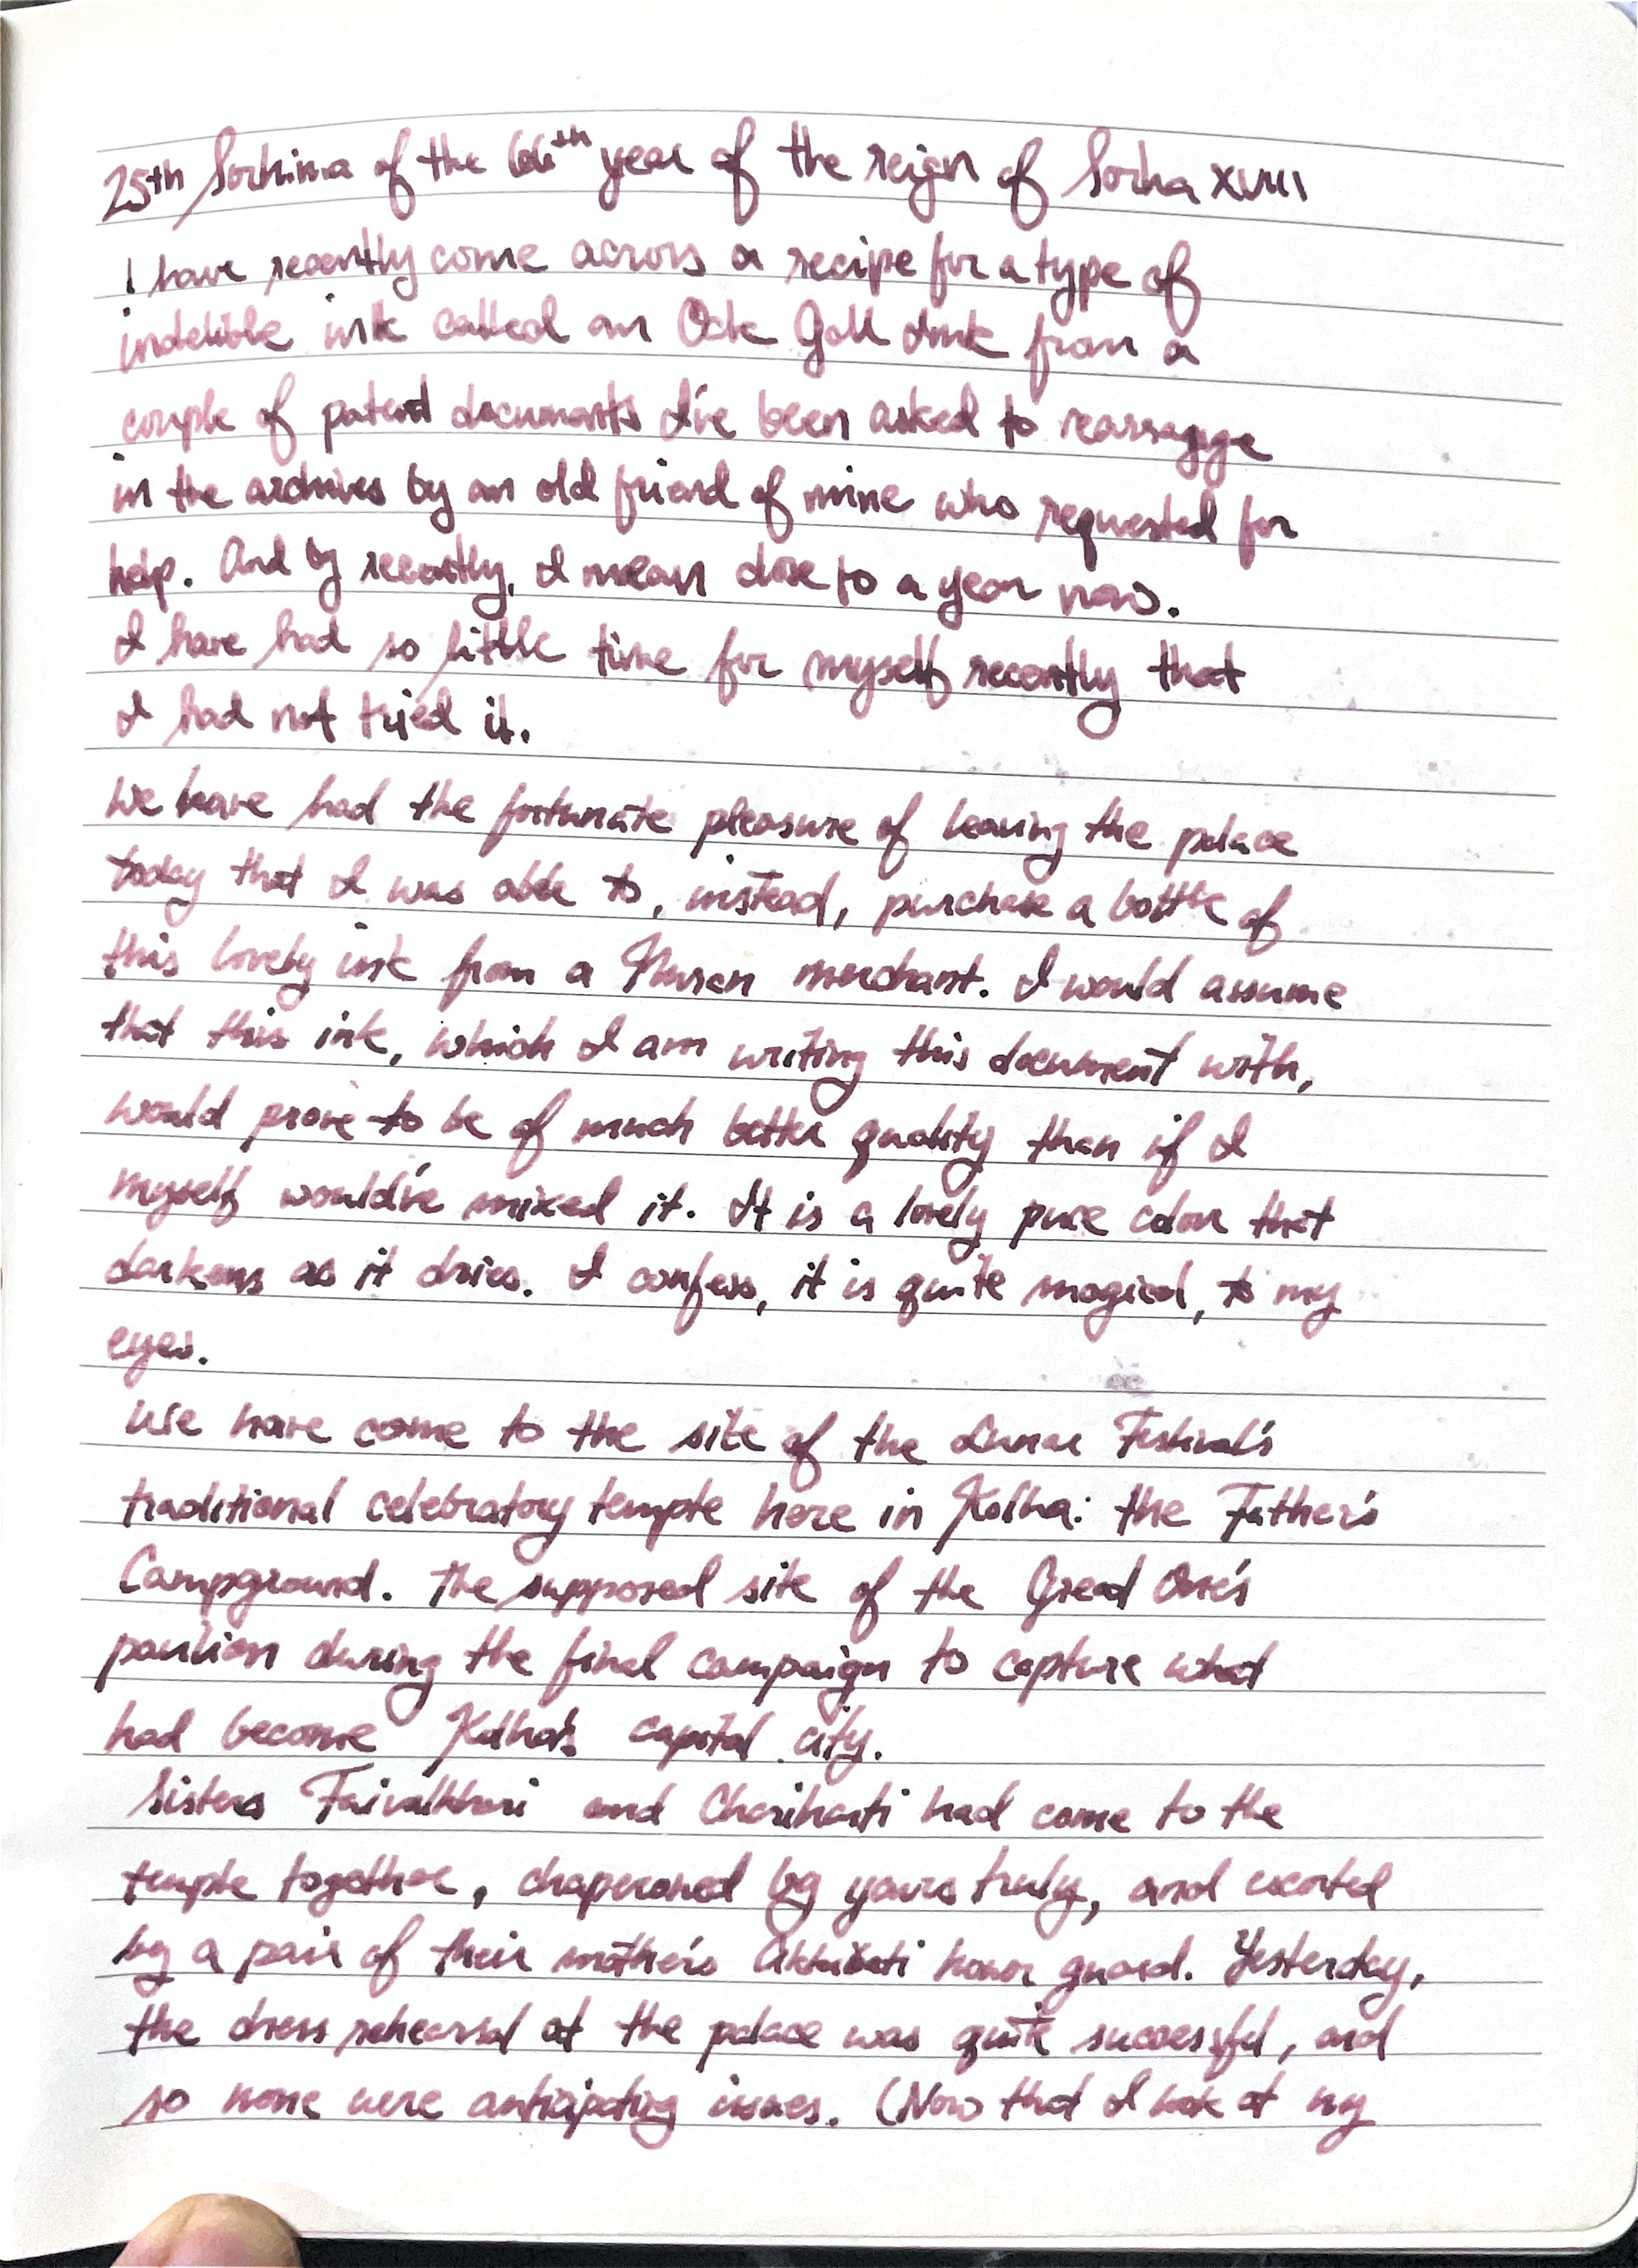 25th Sorhima of the 66th year of the reign of Sorha XVIII
I have recently come across a recipe for a type of
indelible ink called an Oak Gall Ink from a
couple of patent documents I've been asked to rearrange
in the archives by an old friend of mine who requested for
help. And by recently, I mean close to a year now.
I have had so little time for myself recently that
I had not tried it.
We have had the fortunate pleasure of leaving the palace
today that I was able to, instead, purchase a bottle of
this lovely ink from a merchant. I would assume
that this ink, which I am writing this document with,
would prove to be of much better quality than if I
myself would've mixed it. It is a lovely puce color that
darkens as it dries. I confess, it is quite magical, to my
eyes.
We have come to the site of the Lunar Festival's
traditional celebratory temple here in Kolha: the Father's
Campground. The supposed site of the Great One's
pavilion during the final campaign to capture what
had become Kolha's capital city.
Sisters and Charihanti had come to the
temple together, chaperoned by yours truly, and escorted
by a pair of their mother's honor guard. Yesterday,
the dress rehearsal at the palace was quite successful, and
so none were anticipating issues. (Now that I look at my